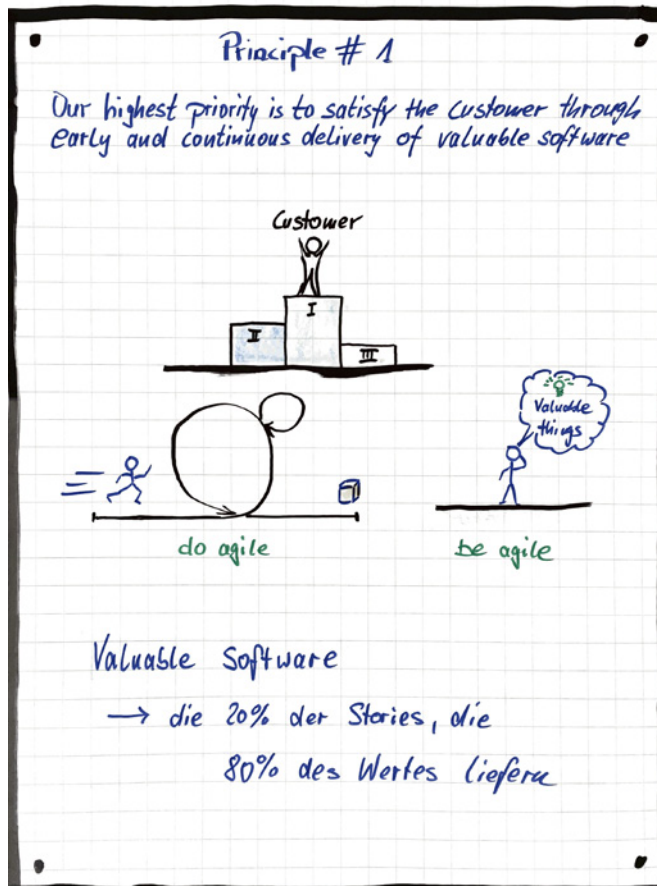 Principle # 1
Our highest priority is to satisfy the customer through
early and continuous delivery of valuable software
Customer
I
II
III
Valuable
things
do agile
be agile
Valuable Software
→ die 20% der Stories, die
80% des Wertes liefern